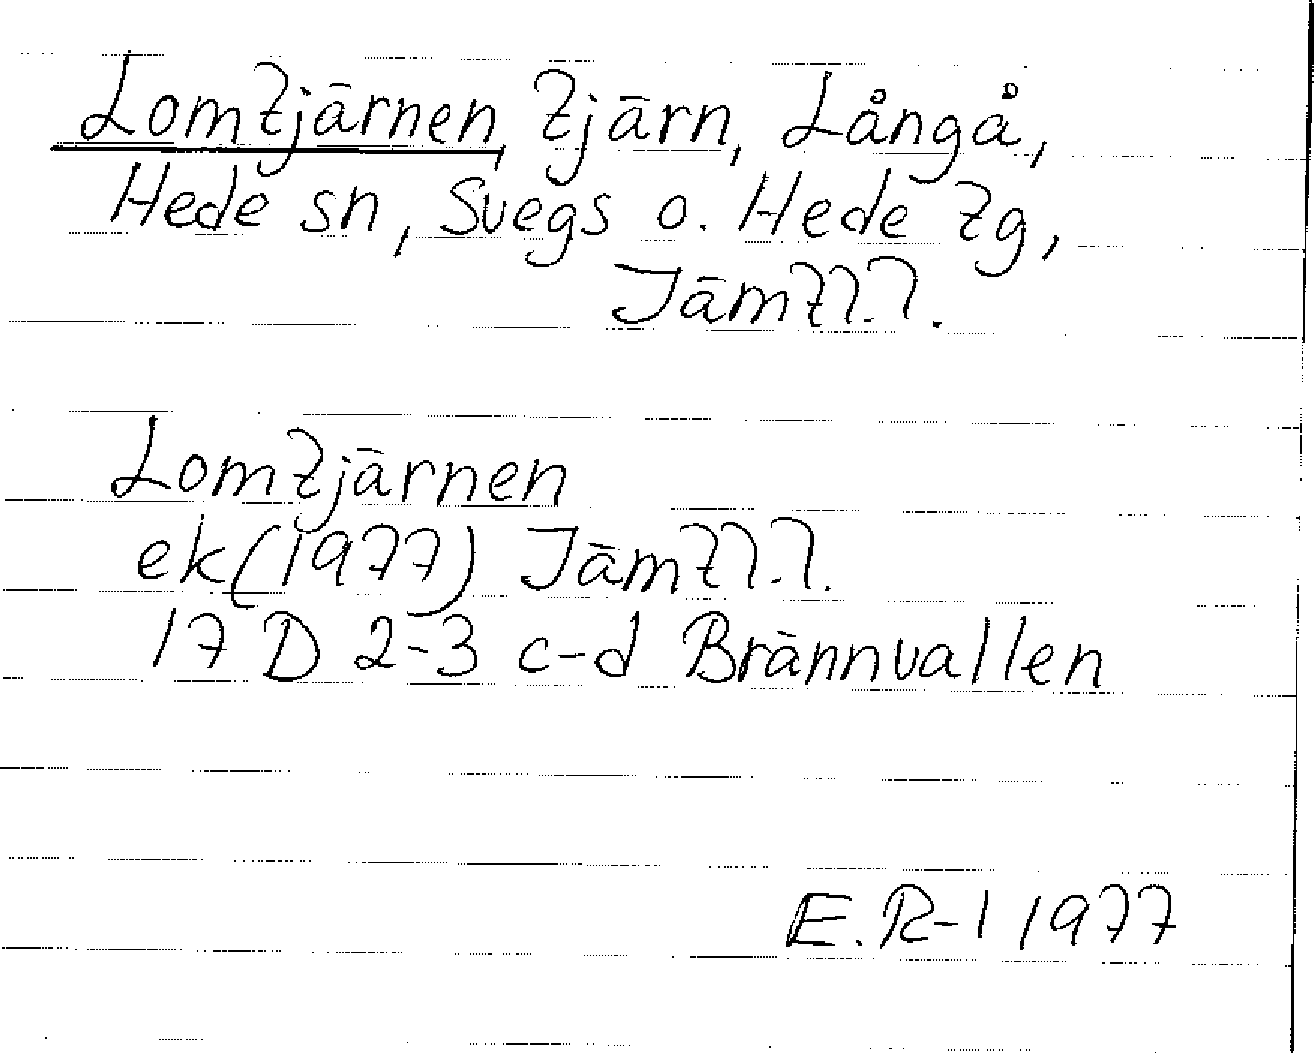 Lomtjärnen, tjärn, Långå,
Hede sn, Svegs o. Hede tg,
Jämtl.l.
Lomtjärnen
ek(1977) Jämtl.l.
17 D 2-3 c-d Brännvallen
E.R-l 1977